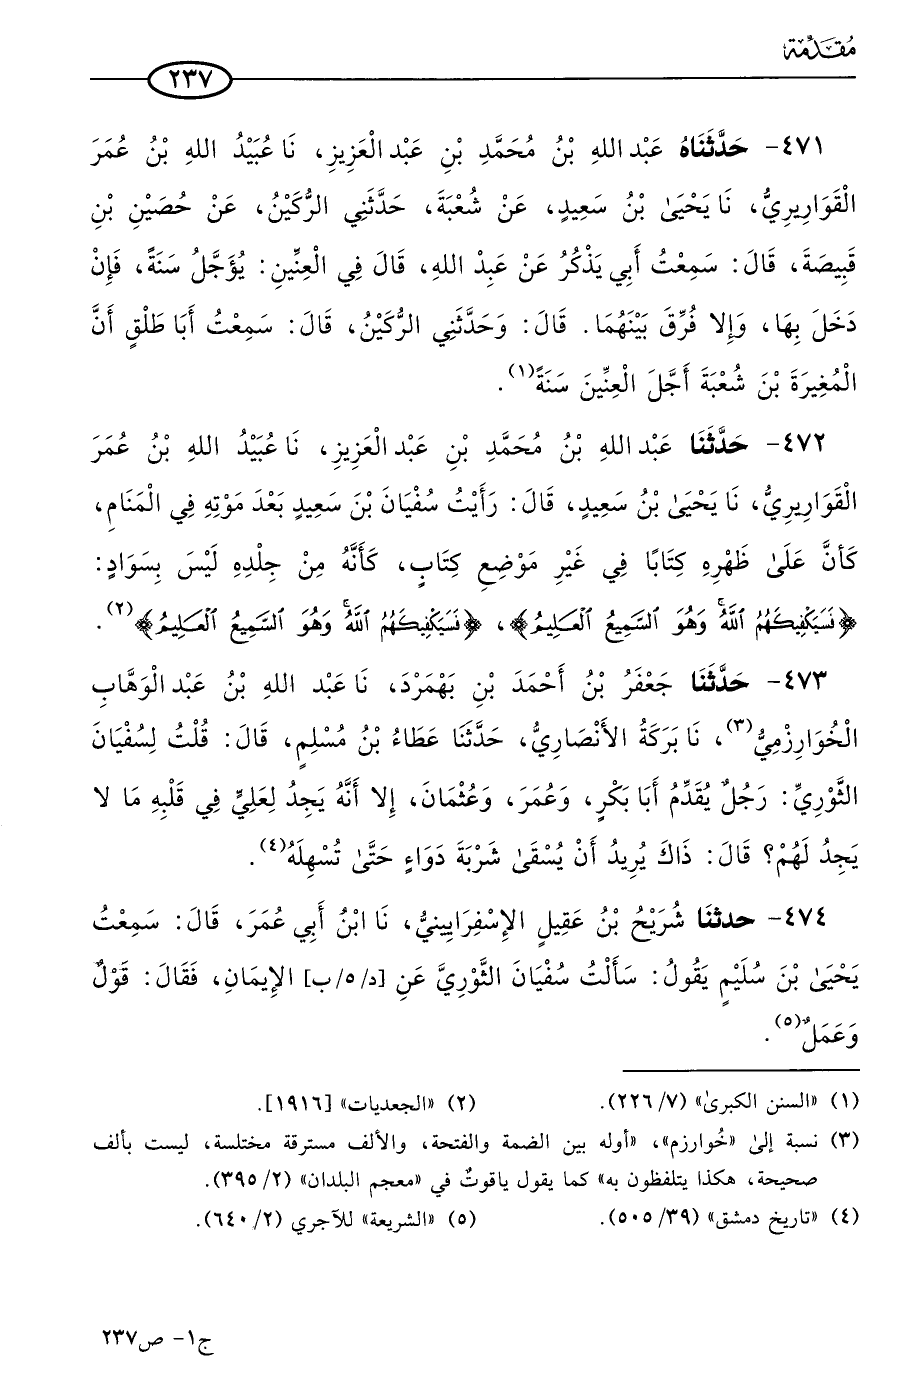 مُقَدِّمَة
٢٣٧
٤٧١- حَدَّثَنَاهُ عَبْد اللهِ بْنُ مُحَمَّدِ بْنِ عَبْد الْعَزِيزِ، نَا عُبَيْدُ اللهِ بْنُ عُمَرَ
الْقَوَارِيرِيُّ، نَا يَحْيَىٰ بْنُ سَعِيدٍ، عَنْ شُعْبَةَ، حَدَّثَنِي الرُّكَيْنُ، عَنْ حُصَيْنِ بْنِ
قَبِيصَةَ، قَالَ: سَمِعْتُ أَبِي يَذْكُرُ عَنْ عَبِدْ اللهِ، قَالَ فِي الْعِنِّينِ: يُؤَجَّلُ سَنَةً، فَإِنْ
دَخَلَ بِهَا، وَإِلا فُرِّقَ بَيْنَهُمَا. قَالَ: وَحَدَّثَنِي الرُّكَيْنُ، قَالَ: سَمِعْتُ أَبَا طَلْقٍ أَنَّ
الْمُغِيرَةَ بْنَ شُعْبَةَ أَجَّلَ الْعِنِّينَ سَنَةً(١).
٤٧٢- حَدَّثَنَا عَبْد اللهِ بْنُ مُحَمَّدِ بْنِ عَبْد الْعَزِيزِ، نَا عُبَيْدُ اللهِ بْنُ عُمَرَ
الْقَوَارِيرِيُّ، نَا يَحْيَىٰ بْنُ سَعِيدٍ، قَالَ: رَأَيْتُ سُفْيَانَ بْنَ سَعِيدٍ بَعْدَ مَوْتِهِ فِي الْمَنَامِ،
كَأنَّ عَلَىٰ ظَهْرِهِ كِتَابًا فِي غَيْرِ مَوْضِعِ كِتَابٍ، كَأَنَّهُ مِنْ جِلْدِهِ لَيْسَ بِسَوَادٍ:
﴿فَسَيَكْفِيكَهُمُ ٱللَّهُۚ وَهُوَ ٱلسَّمِيعُ ٱلْعَلِيمُ﴾، ﴿فَسَيَكْفِيكَهُمُ ٱللَّهُۚ وَهُوَ ٱلسَّمِيعُ ٱلْعَلِيمُ﴾(٢).
٤٧٣- حَدَّثَنَا جَعْفَرُ بْنُ أَحْمَدَ بْنِ بَهْمَرْدَ، نَا عَبْد اللهِ بْنُ عَبْد الْوَهَّابِ
الْخُوَارِزْمِيُّ(٣)، نَا بَرَكَةُ الأَنْصَارِيُّ، حَدَّثَنَا عَطَاءُ بْنُ مُسْلِمٍ، قَالَ: قُلْتُ لِسُفْيَانَ
الثَّوْرِيِّ: رَجُلٌ يُقَدِّمُ أَبَا بَكْرٍ، وَعُمَرَ، وَعُثْمَانَ، إِلا أَنَّهُ يَجِدُ لِعَلِيٍّ فِي قَلْبِهِ مَا لا
يَجِدُ لَهُمْ؟ قَالَ: ذَاكَ يُرِيدُ أَنْ يُسْقَىٰ شَرْبَةَ دَوَاءٍ حَتَّىٰ تُسْهِلَهُ(٤).
٤٧٤- حدثنَا شُرَيْحُ بْنُ عَقِيلٍ الإِسْفِرَايِينيُّ، نَا ابْنُ أَبِي عُمَرَ، قَالَ: سَمِعْتُ
يَحْيَىٰ بْنَ سُلَيْمٍ يَقُولُ: سَأَلْتُ سُفْيَانَ الثَّوْرِيَّ عَنِ [د/٥/ب] الإِيمَانِ، فَقَالَ: قَوْلٌ
وَعَمَلٌ(٥).
(١) «السنن الكبرىٰ» (٧/ ٢٢٦). (٢) «الجعديات» [١٩١٦].
(٣) نسبة إلىٰ «خُوارزم»، «أوله بين الضمة والفتحة، والألف مسترقة مختلسة، ليست بألف
صحيحة، هكذا يتلفظون به» كما يقول ياقوتٌ في «معجم البلدان» (٢/ ٣٩٥).
(٤) «تاريخ دمشق» (٣٩/ ٥٠٥). (٥) «الشريعة» للآجري (٢/ ٦٤٠).
ج١- ص٢٣٧